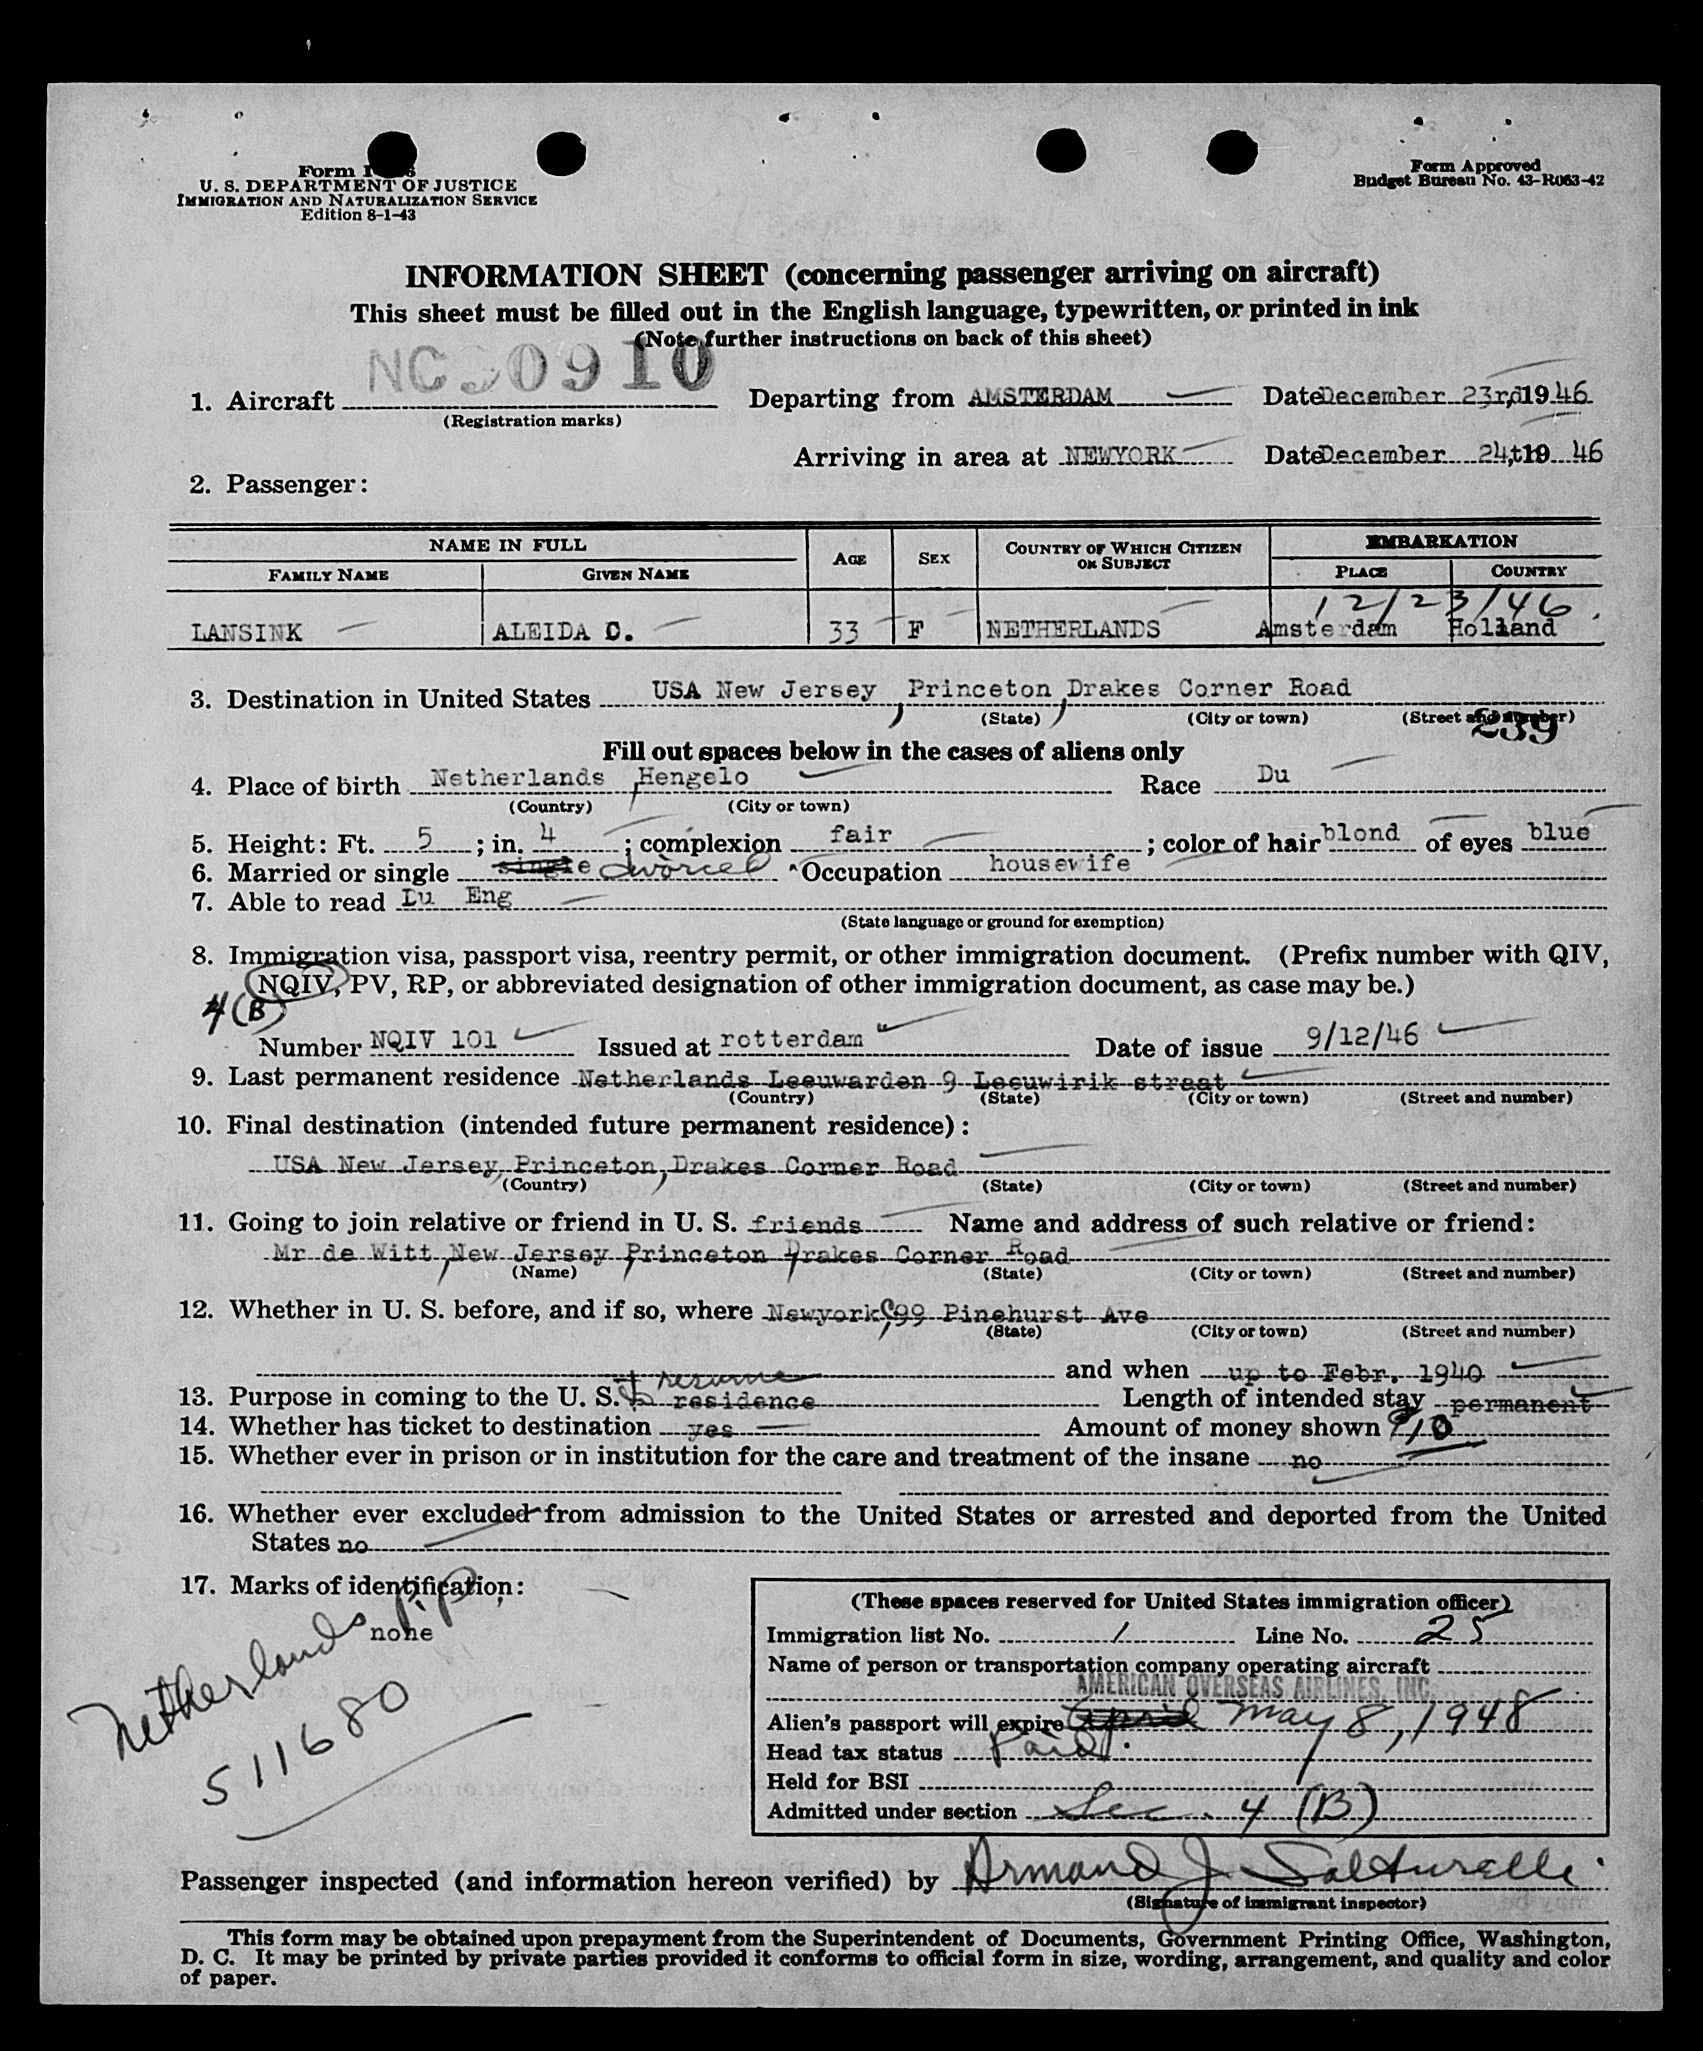 Form
U. S. DEPARTMENT OF JUSTICE
IMMIGRATION AND NATURALIZATION SERVICE
Edition 8-1-43
Form Approved
Budget Bureau No. 43-R063-42
INFORMATION SHEET (concerning passenger arriving on aircraft)
This sheet must be filled out in the English language, typewritten, or printed in ink
(Note further instructions on back of this sheet)
1. Aircraft NC90910 Departing from AMSTERDAM Date December 23rd, 1946
(Registration marks)
Arriving in area at NEWYORK Date December 24,t19 46
2. Passenger:
NAME IN FULL AGE SEX COUNTRY OF WHICH CITIZEN OR SUBJECT EMBARKATION
FAMILY NAME GIVEN NAME PLACE COUNTRY
12/23/46.
LANSINK ALEIDA C. 33 F NETHERLANDS Amsterdam Holland
3. Destination in United States USA New Jersey, Princeton, Drakes Corner Road
(State) (City or town) (Street and number)
239
Fill out spaces below in the cases of aliens only
4. Place of birth Netherlands, Hengelo Race Du
(Country) (City or town)
5. Height: Ft. 5 ; in. 4 ; complexion fair ; color of hair blond of eyes blue
6. Married or single single divorced Occupation housewife
7. Able to read Du Eng
(State language or ground for exemption)
8. Immigration visa, passport visa, reentry permit, or other immigration document. (Prefix number with QIV,
NQIV, PV, RP, or abbreviated designation of other immigration document, as case may be.)
4(B)
Number NQIV 101 Issued at rotterdam Date of issue 9/12/46
9. Last permanent residence Netherlands Leeuwarden 9 Leeuwirik straat
(Country) (State) (City or town) (Street and number)
10. Final destination (intended future permanent residence):
USA New Jersey, Princeton, Drakes Corner Road
(Country) (State) (City or town) (Street and number)
11. Going to join relative or friend in U. S. friends Name and address of such relative or friend:
Mr de Witt, New Jersey, Princeton, Drakes Corner Road
(Name) (State) (City or town) (Street and number)
12. Whether in U. S. before, and if so, where Newyork, 99 Pinehurst Ave
(State) (City or town) (Street and number)
and when up to Febr. 1940
13. Purpose in coming to the U. S. to resume residence Length of intended stay permanent
14. Whether has ticket to destination yes Amount of money shown $10
15. Whether ever in prison or in institution for the care and treatment of the insane no
16. Whether ever excluded from admission to the United States or arrested and deported from the United
States no
17. Marks of identification:
none
Netherlands P.P.
511680
(These spaces reserved for United States immigration officer)
Immigration list No. 1 Line No. 25
Name of person or transportation company operating aircraft
AMERICAN OVERSEAS AIRLINES, INC.
Alien's passport will expire April May 8, 1948
Head tax status Paid.
Held for BSI
Admitted under section Sec. 4 (B)
Passenger inspected (and information hereon verified) by Armand J Salturelli
(Signature of immigrant inspector)
This form may be obtained upon prepayment from the Superintendent of Documents, Government Printing Office, Washington,
D. C. It may be printed by private parties provided it conforms to official form in size, wording, arrangement, and quality and color
of paper.